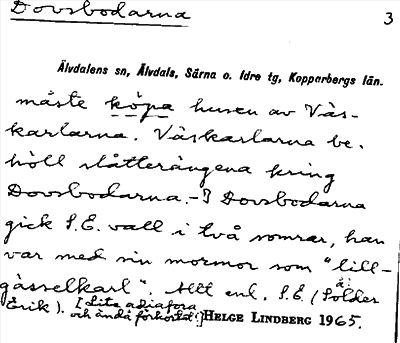 Dovsbodarna
3
Älvdalens sn, Älvdals, Särna o. Idre tg, Kopparbergs län.
måste köpa husen av Väs-
karlarna. Väskarlarna be-
höll slåtterängena kring
Dovsbodarna.-I Dovsbodarna
gick S.E. vall i två somrar, han
var med sin mormor som "lill-
gässelkarl". Allt enl. S.E. (Sölder
Erik). [Lite adiafora
och ändå förkortat!] HELGE LINDBERG 1965.